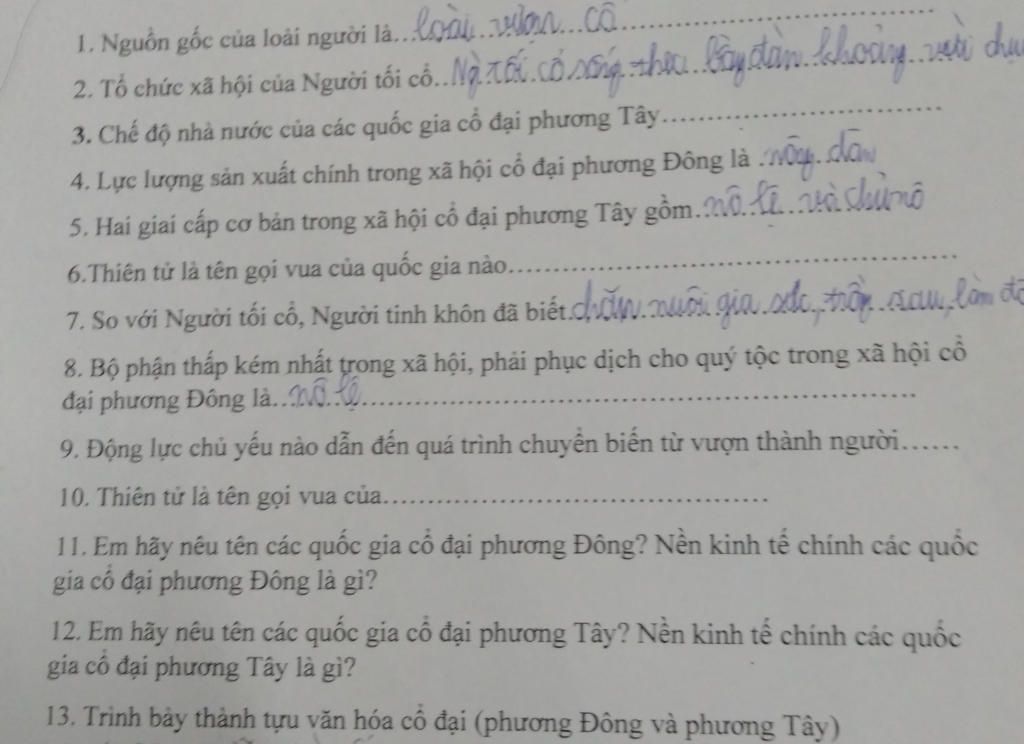 1. Nguồn gốc của loài người là...loài vượn cổ...............
2. Tổ chức xã hội của Người tối cổ..Ng tối cổ sống theo bầy đàn khoảng vài chục
3. Chế độ nhà nước của các quốc gia cổ đại phương Tây..............................
4. Lực lượng sản xuất chính trong xã hội cổ đại phương Đông là .nông dân
5. Hai giai cấp cơ bản trong xã hội cổ đại phương Tây gồm..nô lệ và chủ nô
6.Thiên tử là tên gọi vua của quốc gia nào..............................
7. So với Người tối cổ, Người tinh khôn đã biết.chăn nuôi gia súc, trồng rau, làm đồ
8. Bộ phận thấp kém nhất trong xã hội, phải phục dịch cho quý tộc trong xã hội cổ
đại phương Đông là..nô lệ..............................
9. Động lực chủ yếu nào dẫn đến quá trình chuyển biến từ vượn thành người......
10. Thiên tử là tên gọi vua của..............................
11. Em hãy nêu tên các quốc gia cổ đại phương Đông? Nền kinh tế chính các quốc
gia cổ đại phương Đông là gì?
12. Em hãy nêu tên các quốc gia cổ đại phương Tây? Nền kinh tế chính các quốc
gia cổ đại phương Tây là gì?
13. Trình bày thành tựu văn hóa cổ đại (phương Đông và phương Tây)